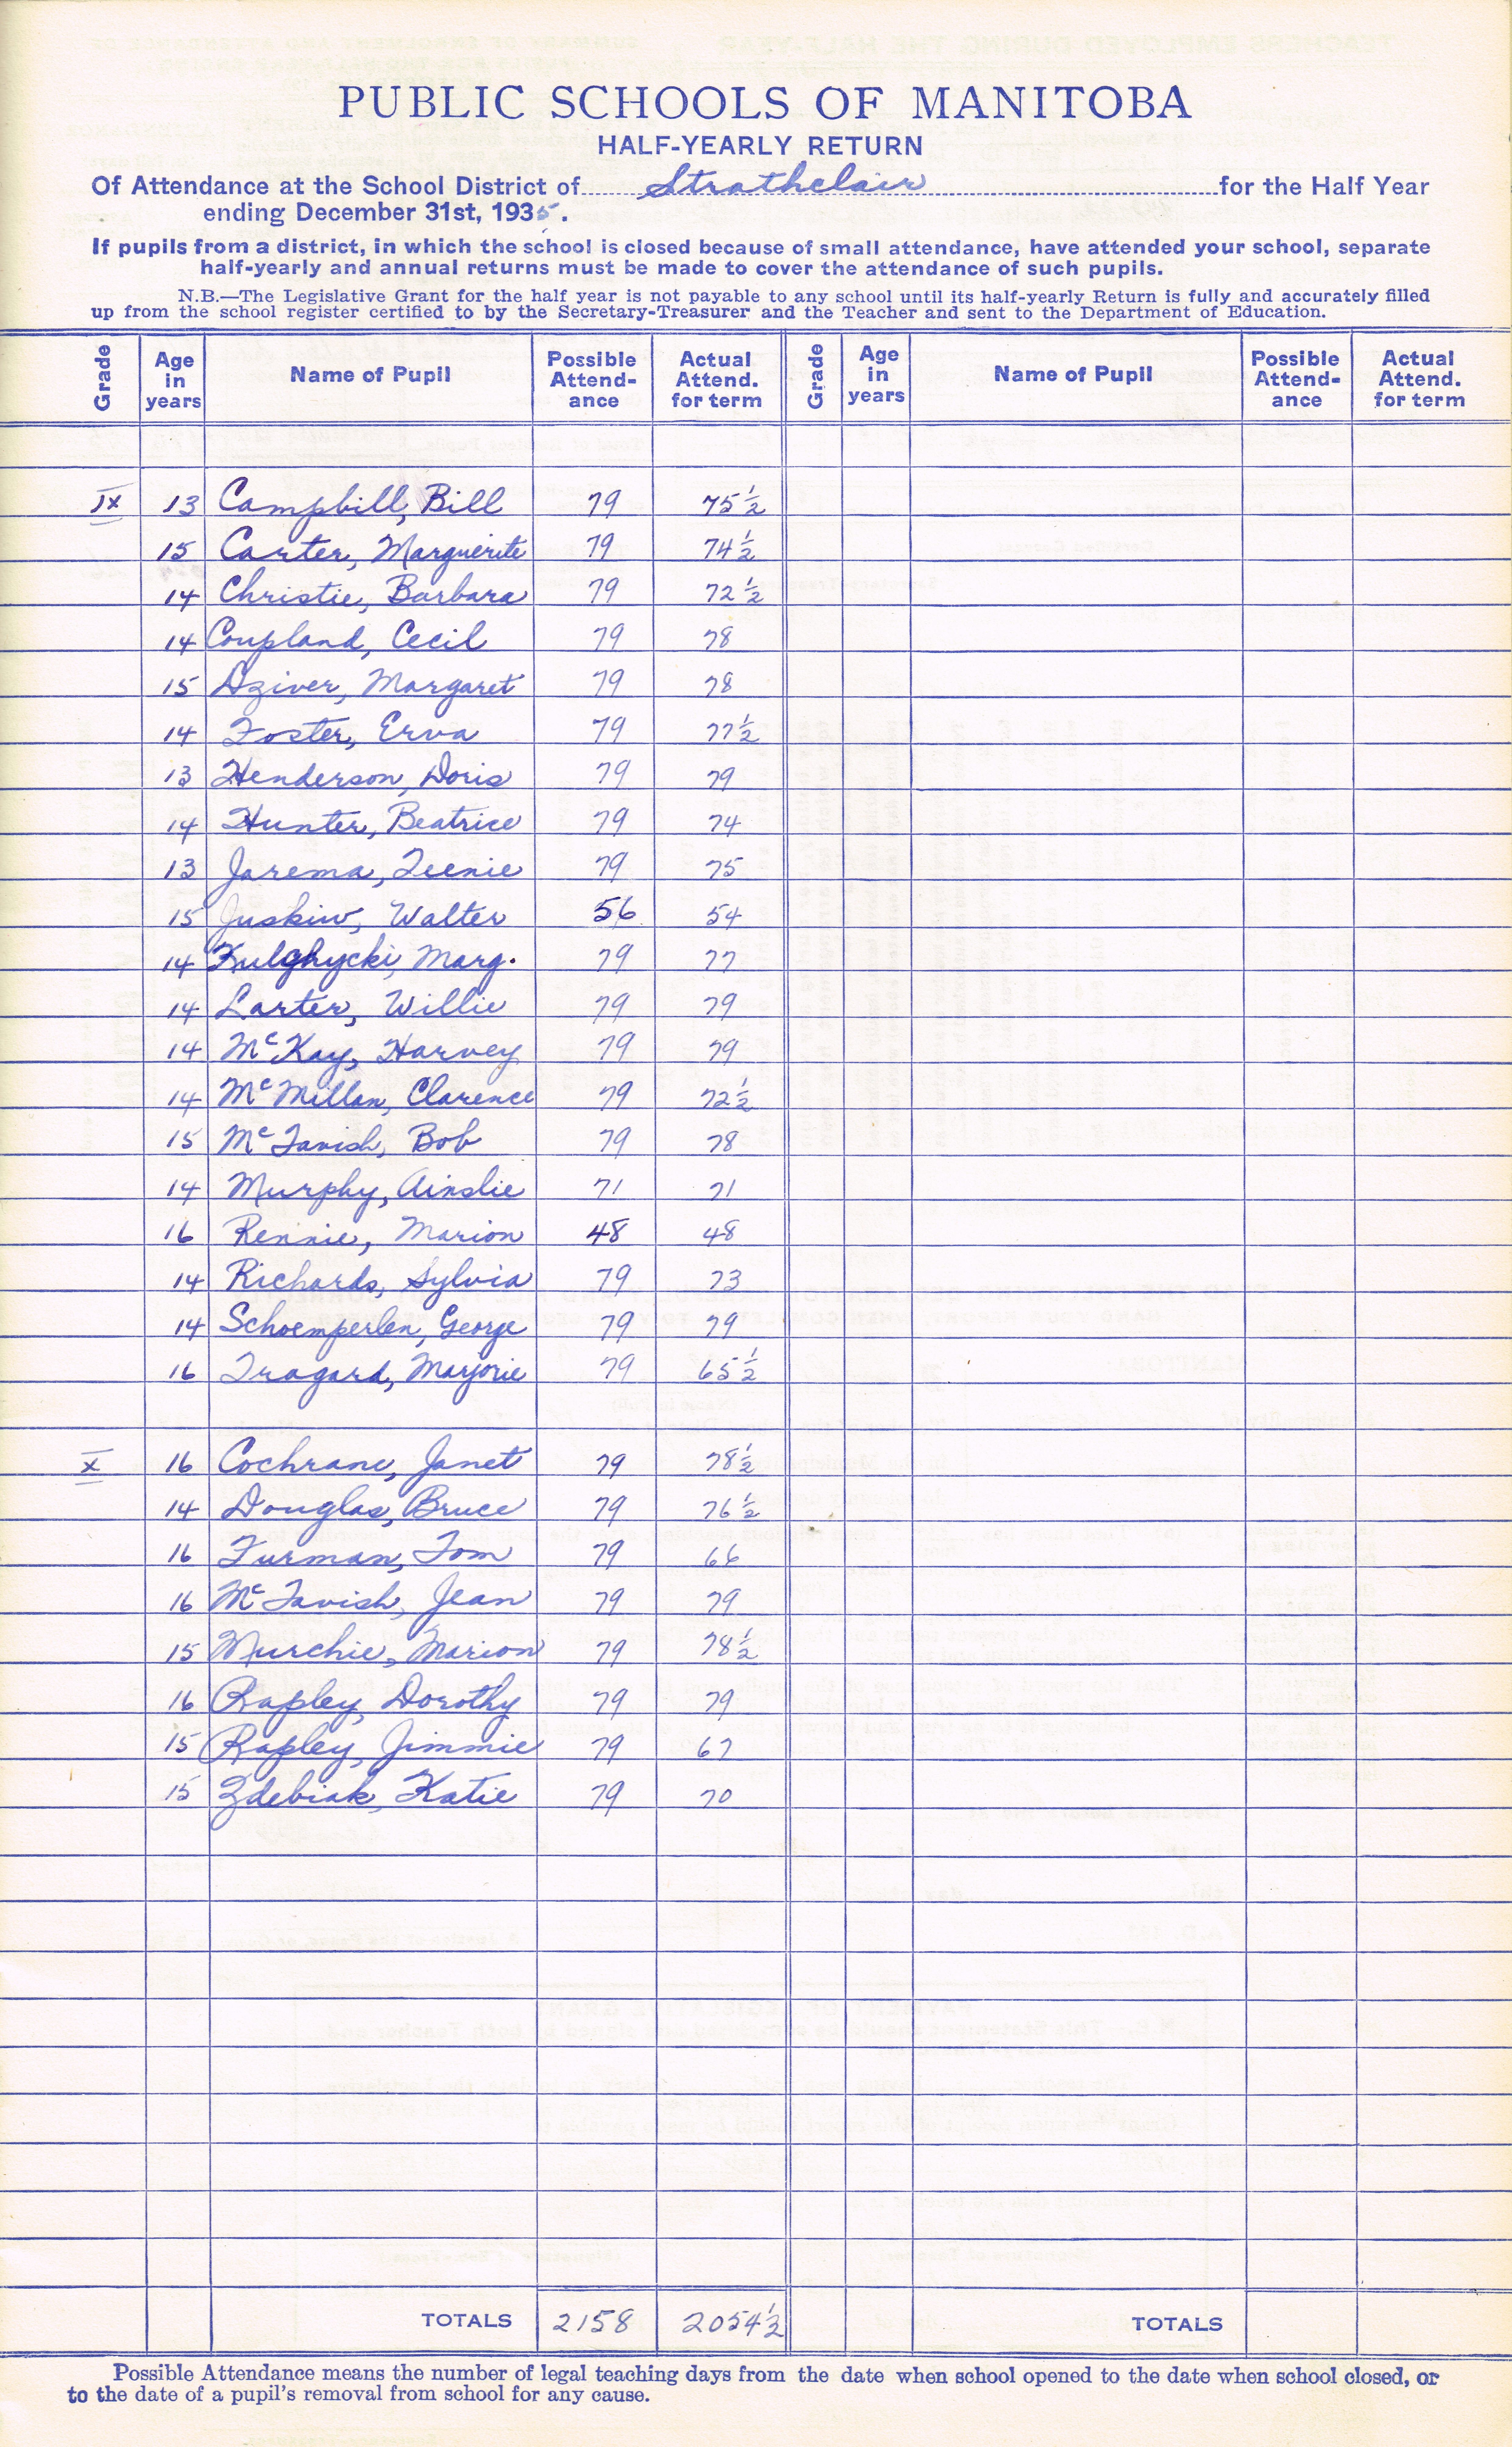 PUBLIC SCHOOLS OF MANITOBA
HALF-YEARLY RETURN
Of Attendance at the School District of Strathclair for the Half Year
ending December 31st, 1935.
If pupils from a district, in which the school is closed because of small attendance, have attended your school, separate
half-yearly and annual returns must be made to cover the attendance of such pupils.
N.B.—The Legislative Grant for the half year is not payable to any school until its half-yearly Return is fully and accurately filled
up from the school register certified to by the Secretary-Treasurer and the Teacher and sent to the Department of Education.
Grade Age in years Name of Pupil Possible Attend-ance Actual Attend. for term Grade Age in years Name of Pupil Possible Attend-ance Actual Attend. for term
IX 13 Campbill, Bill 79 75½
15 Carter, Marguerite 79 74½
14 Christie, Barbara 79 72½
14 Coupland, Cecil 79 78
15 Dziver, Margaret 79 78
14 Foster, Erva 79 77½
13 Henderson, Doris 79 79
14 Hunter, Beatrice 79 74
13 Jarema, Teenie 79 75
15 Juskiw, Walter 56 54
14 Kulghycki, Marg. 79 77
14 Larter, Willie 79 79
14 McKay, Harvey 79 79
14 McMillan, Clarence 79 72½
15 McTavish, Bob 79 78
14 Murphy, Ainslie 71 71
16 Rennie, Marion 48 48
14 Richards, Sylvia 79 73
14 Schoemperlen, George 79 79
16 Tragard, Marjorie 79 65½
X 16 Cochrane, Janet 79 78½
14 Douglas, Bruce 79 76½
16 Furman, Tom 79 66
16 McTavish, Jean 79 79
15 Murchie, Marion 79 78½
16 Rapley, Dorothy 79 79
15 Rapley, Jimmie 79 67
15 Zdebiak, Katie 79 70
TOTALS 2158 2054½ TOTALS
Possible Attendance means the number of legal teaching days from the date when school opened to the date when school closed, or
to the date of a pupil's removal from school for any cause.